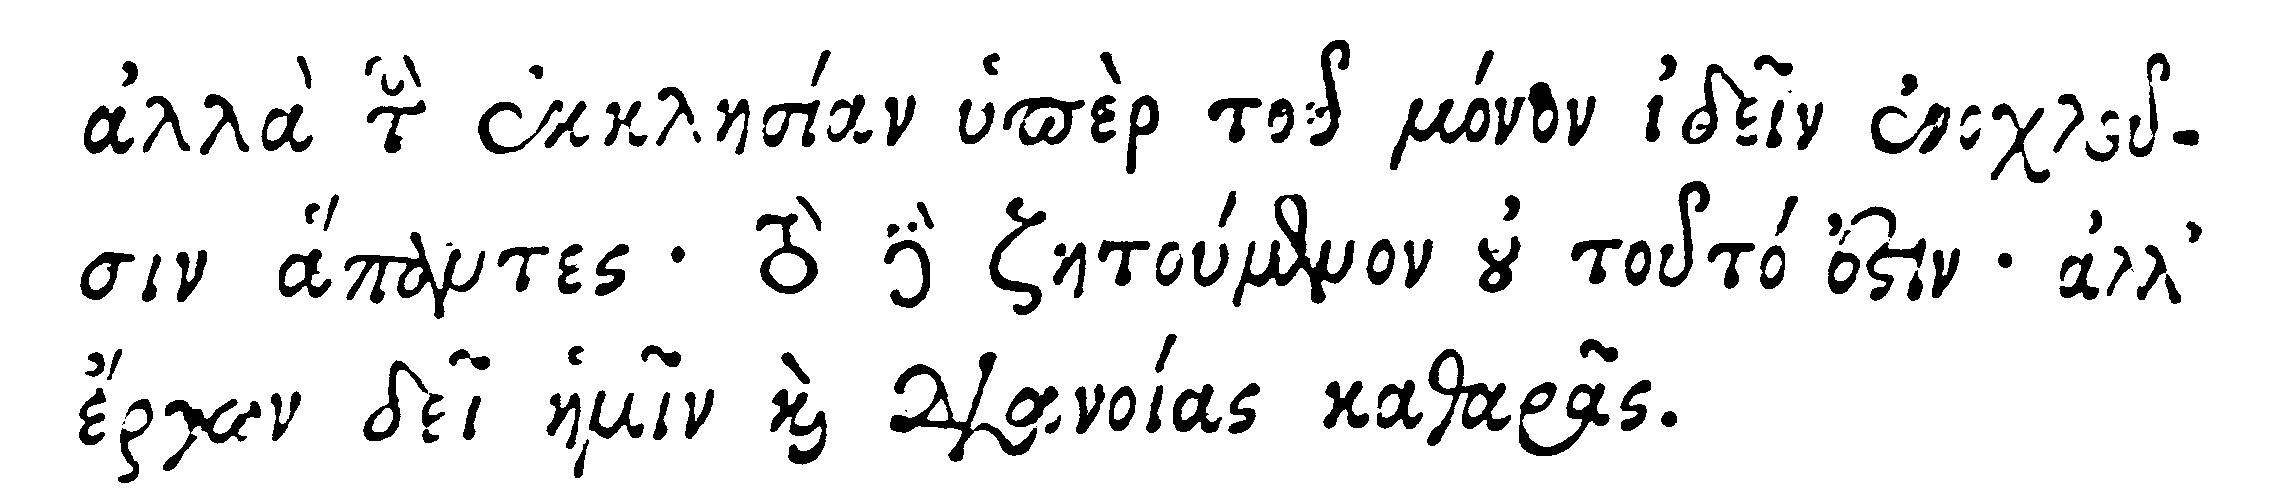 ἀλλὰ τὴν ἐκκλησίαν ὑπὲρ τοῦ μόνον ἰδεῖν ἐνοχλοῦ-
σιν ἅπαντες · τὸ δὲ ζητούμενον οὐ τοῦτό ἐστιν · ἀλλ’
ἔργων δεῖ ἡμῖν καὶ διανοίας καθαρᾶς.